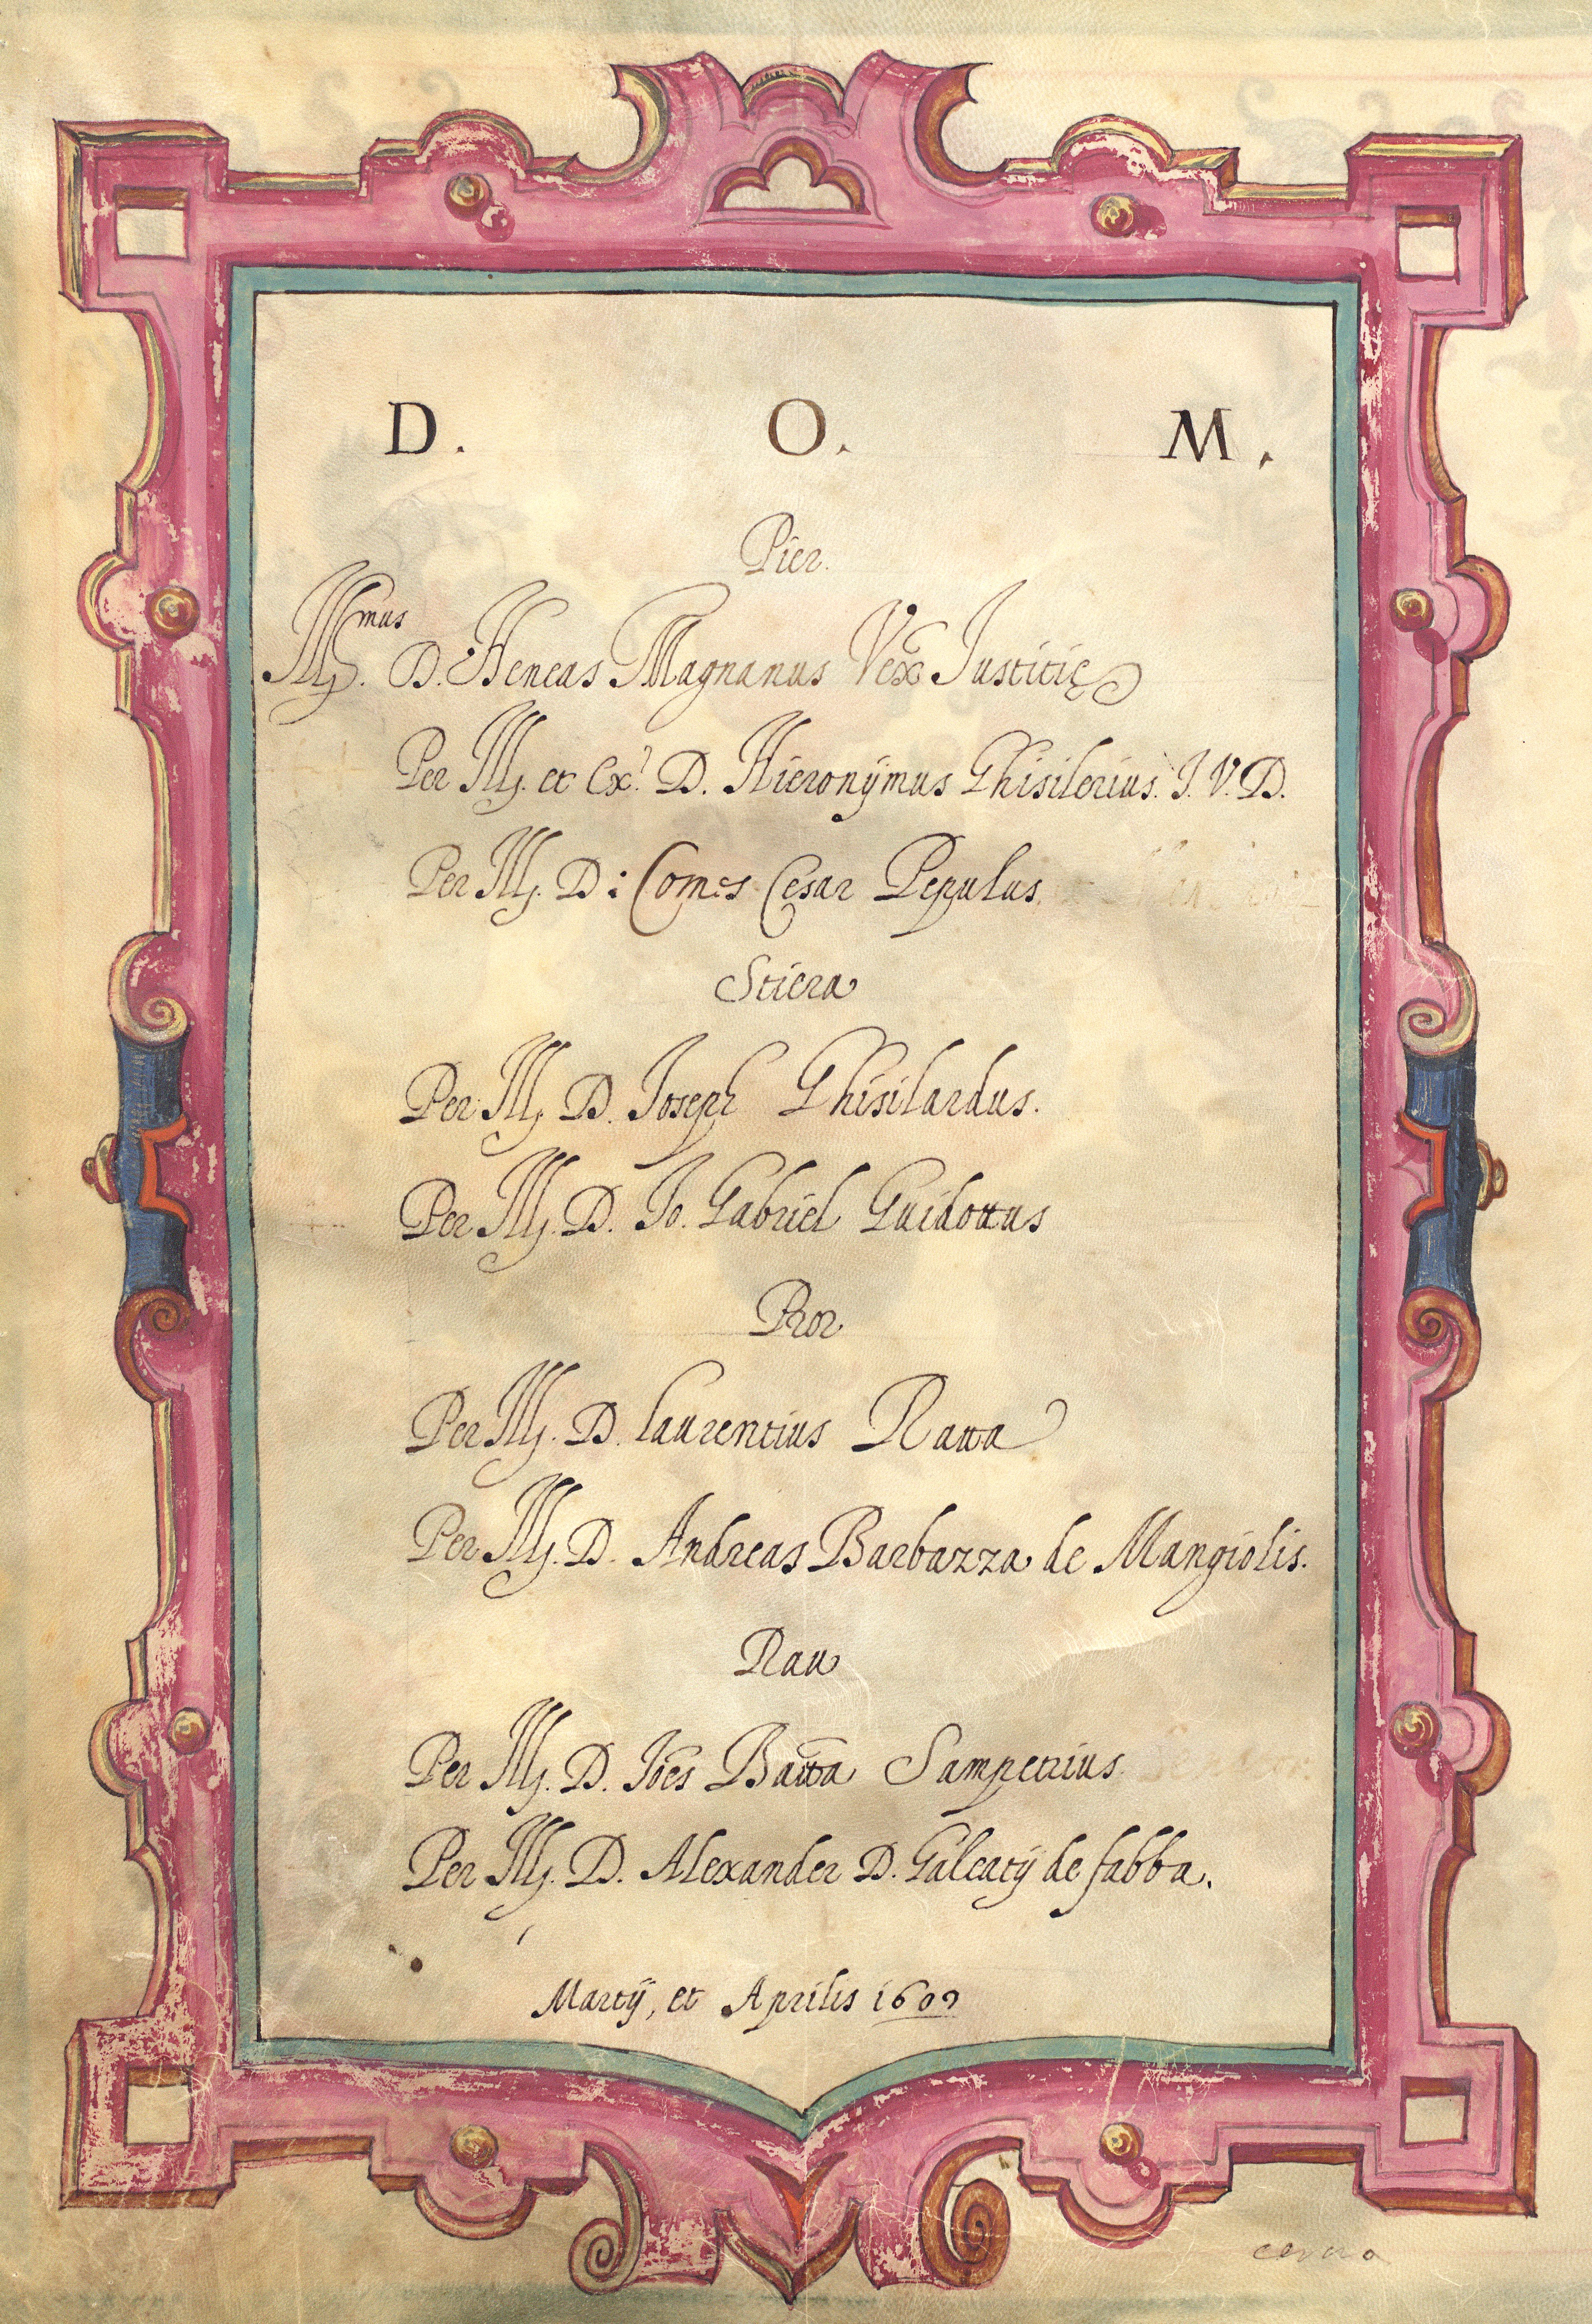 D. O. M.
Pier.
Ill.mus D. Aeneas Magnanus Vex Iustitię
Per Ill. et Ex.t D. Hieronÿmus Ghisilerius. I. V. D.
Per Ill. D: Comes Cesar Pepulus
Stiera
Per Ill. D. Ioseph Ghisilardus.
Per Ill. D. Io. Gabriel Guidottus
Pror
Per Ill. D. Laurentius Ratta
Per Ill. D. Andreas Barbazza de Mangiolis.
Rau
Per Ill. D. Iões Batta Sampetrius
Per Ill. D. Alexander D. Galeatÿ de fabba.
Martÿ, et Aprilis 1609